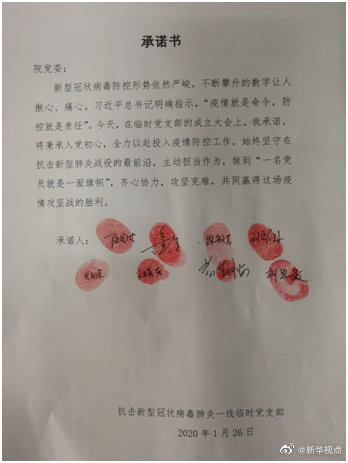 承诺书
院党委：
新型冠状病毒防控形势依然严峻，不断攀升的数字让人
揪心、痛心。习近平总书记明确指示，“疫情就是命令，防
控就是责任”。今天，在临时党支部的成立大会上，我承诺，
将秉承入党初心，全力以赴投入疫情防控工作，始终坚守在
抗击新型肺炎战役的最前沿，主动担当作为，做到“一名党
员就是一面旗帜”，齐心协力，攻坚克难，共同赢得这场疫
情攻坚战的胜利。
承诺人：
抗击新型冠状病毒肺炎一线临时党支部
2020 年 1 月 26 日
@新华视点